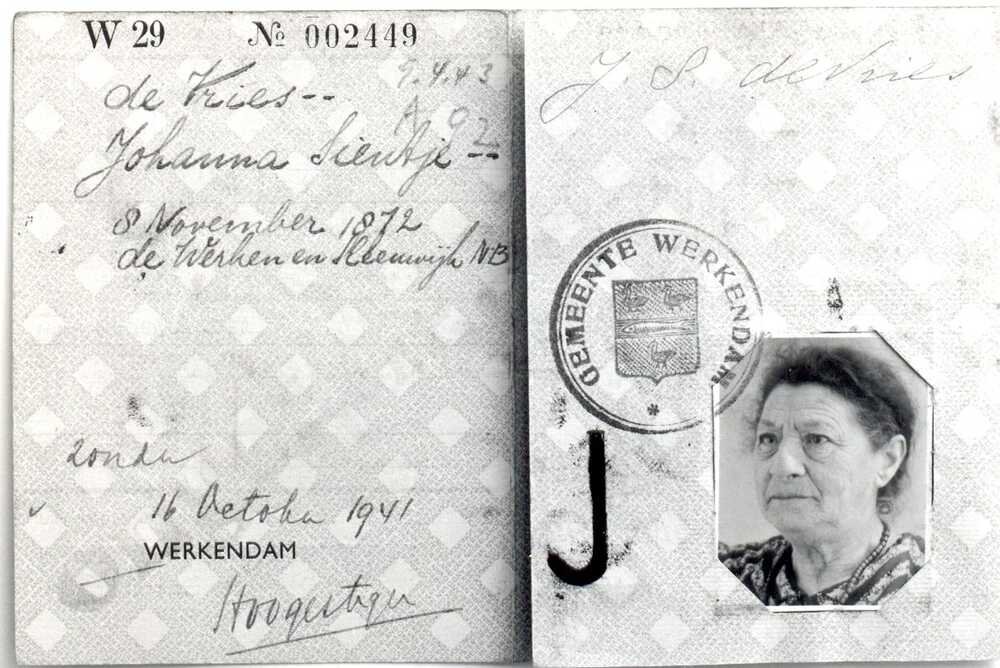 W 29 № 002449
de Vries--
9.4.43
A 92
Johanna Sientje--
8 November 1872
de Werken en Sleeuwijk NB
zonder
16 October 1941
WERKENDAM
Hoogesteger
J. S. de Vries
GEMEENTE WERKENDAM
*
J